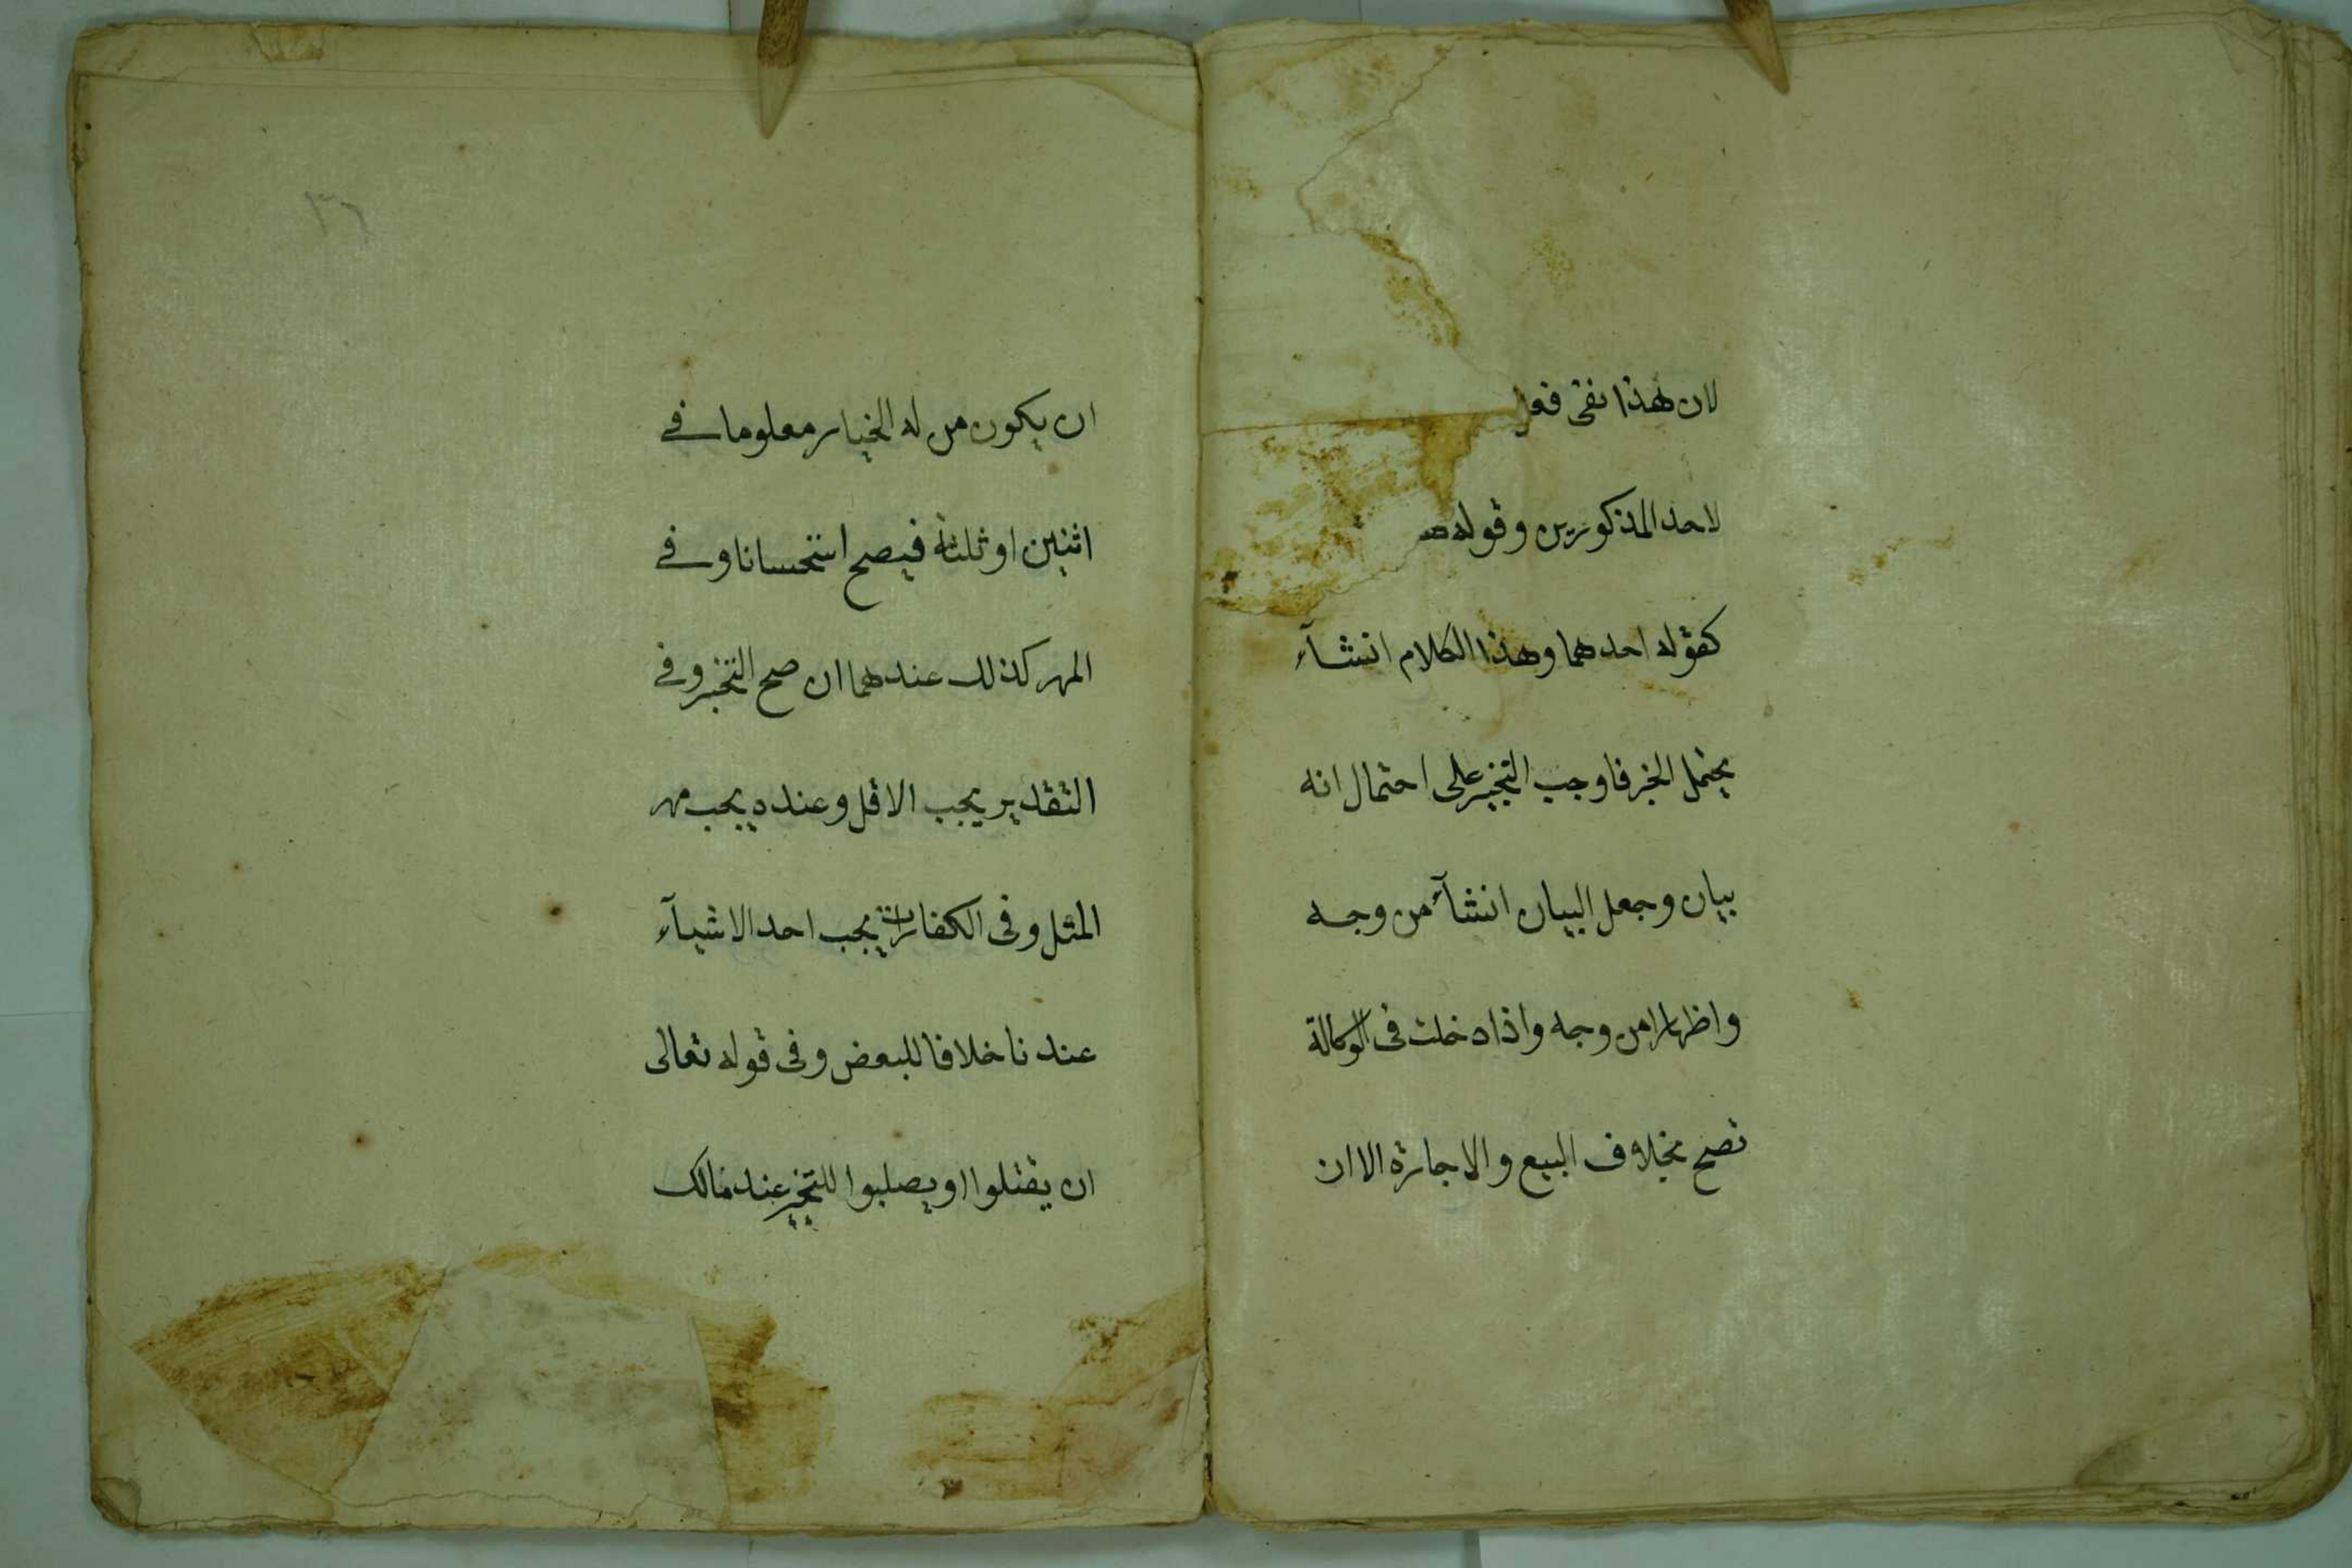 لان هذا نفى فعل
لاحد المذكورين وقوله
كقوله احدهما وهذا الكلام انشآء
يحتمل الخبر فاوجب التخيير على احتمال انه
بيان وجعل البيان انشآء من وجه
واظهارا من وجه واذا دخلت فى الوكالة
تصح بخلاف البيع والاجارة الا ان
٣٦
ان يكون من له الخيار معلوما فے
اثنين او ثلثة فيصح استحسانا وفے
المهر كذلك عندهما ان صح التخير وفے
التقدير يجب الاقل وعنده يجب مهر
المثل وفى الكفارات يجب احد الاشيآء
عندنا خلافا للبعض وفى قوله تعالى
ان يقتلوا او يصلبوا للتخير عند مالك